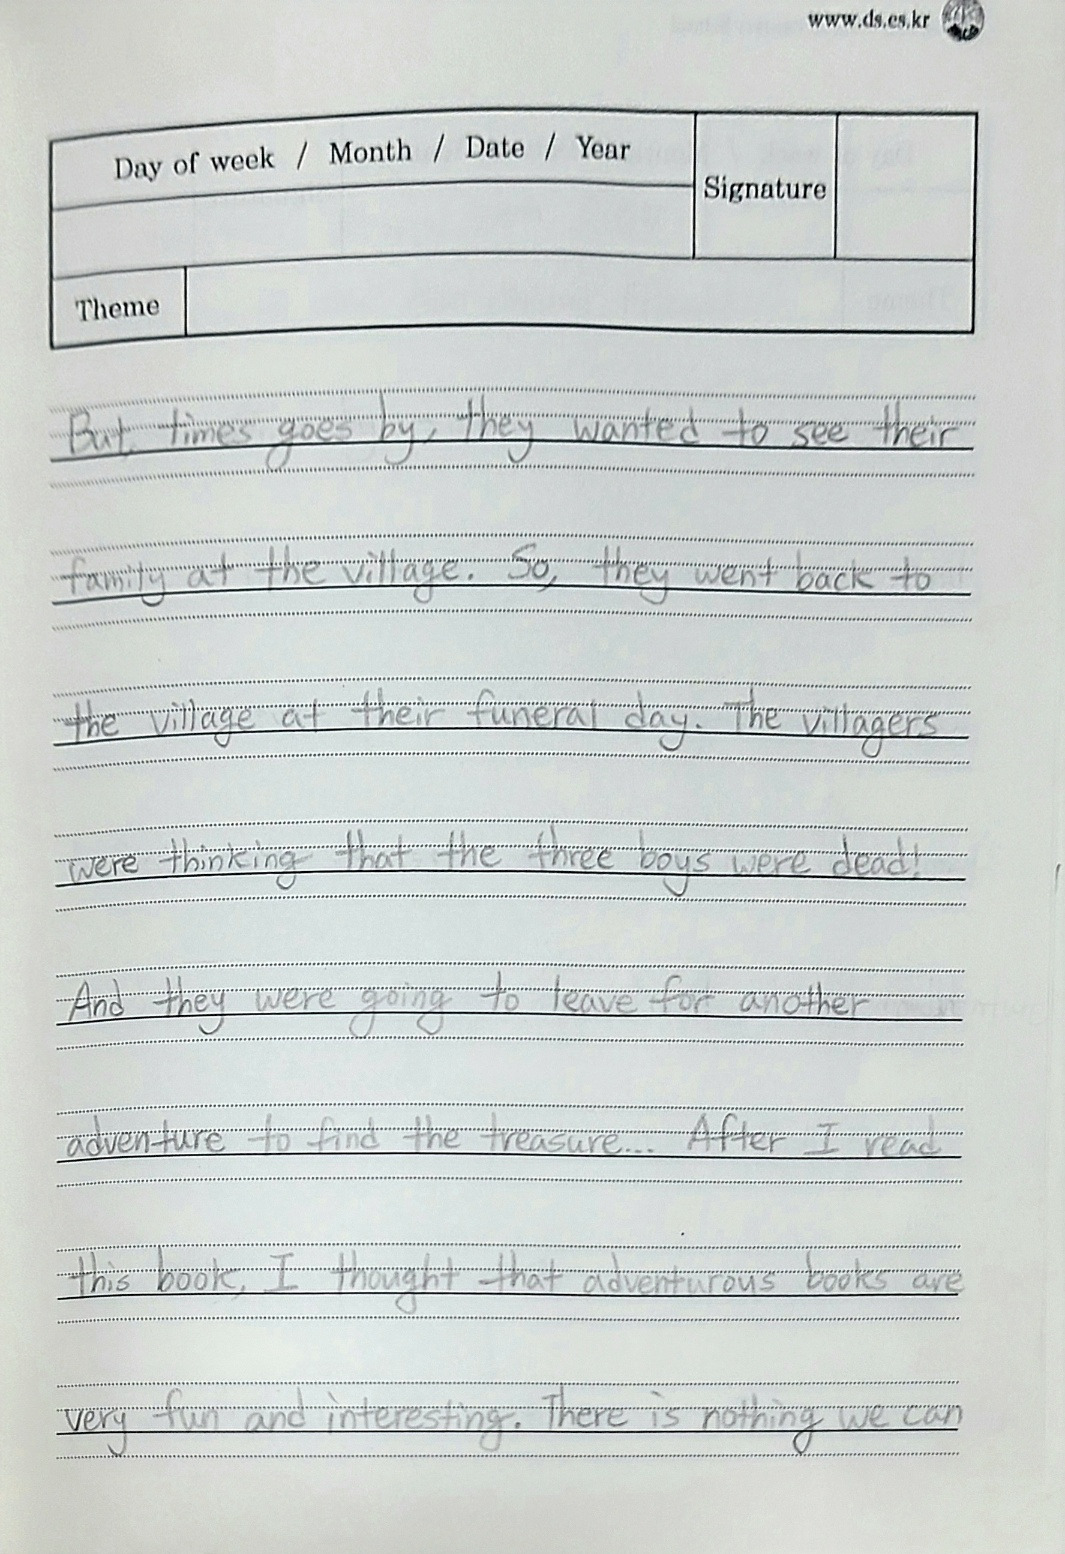 www.ds.es.kr
Day of week / Month / Date / Year
Signature
Theme
But, times goes by, they wanted to see their
family at the village. So, they went back to
the village at their funeral day. The villagers
were thinking that the three boys were dead!
And they were going to leave for another
adventure to find the treasure... After I read
this book, I thought that adventurous books are
very fun and interesting. There is nothing we can